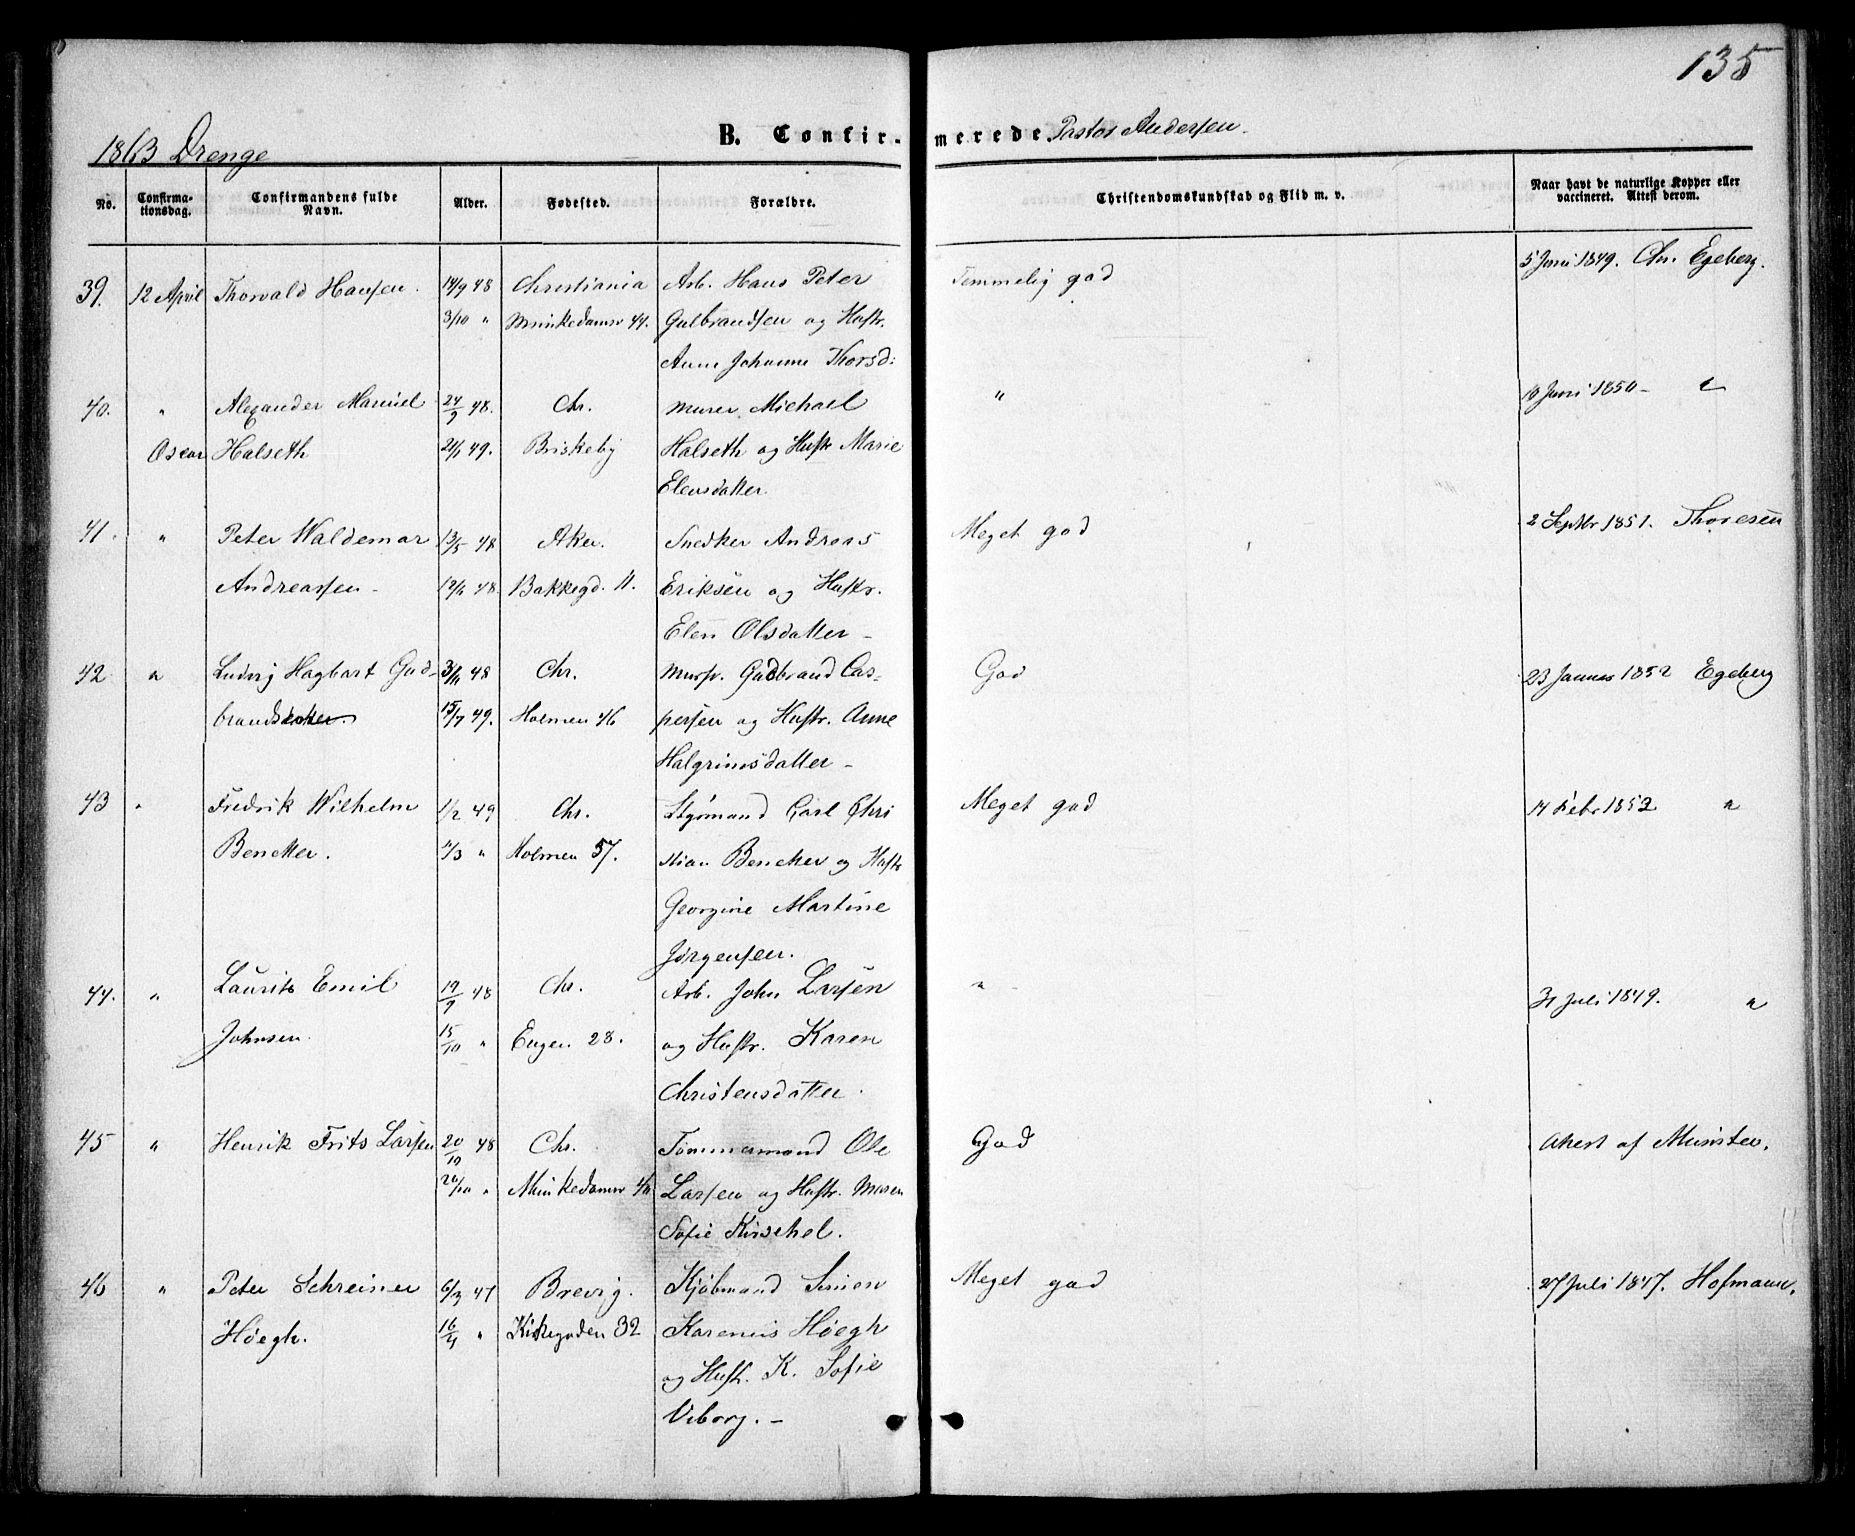 135
1863 Drenge
B. Confir-merede Pastor Andersen.
No. Confirma-tionsdag. Confirmandens fulde Navn. Alder. Fødested. Forældre. Christendomskundskab og Flid m. v. Naar havt de naturlige Kopper eller vaccineret. Attest derom.
39. 12 April Thorvald Hansen. 14/9 48 Christiania Arb. Hans Peter Temmelig god 5 Juni 1849. Chr. Egeberg.
3/10 " Munkedamsv 44. Gulbrandsen og Hustr.
Anne Johanne Thorsd:
40. " Alexander Manuel 24/9 48. Chr. Murer Michael " 10 Juni 1850 - "
Oscar Halseth 21/1 49. Briskeby Halseth og Hustr Marie
Elensdatter
41. " Peter Waldemar 13/5 48 Aker. Snedker Andreas Meget god 2 Septbr 1851. Thoresen
Andreassen - 48. Bakkegd. 11. Eriksen og Hustr.
Elen Olsdatter -
42 " Ludvig Hagbart Gud- 3/11 48 Chr. Mursv. Gudbrand Cas- God 23 Januar 1852 Egeberg
brands 15/7 49. Holmen 46 persen og Hustr. Anne
Halgrimsdatter -
43 " Fredrik Wilhelm 1/2 49 Chr. Styrmand Carl Chri Meget god 14 Febr 1852 "
Bencker. 7/3 " Holmen 57. stian Bencker og Hustr
Georgine Martine
Jørgensen.
44. " Laurits Emil 19/9 48 Chr. Arb. John Larsen " 31 Juli 1849. "
Johnsen. 15/10 " Engen 28. og Hustr. Karen
Christensdatter.
45 " Henrik Frits Larsen 20/10 48 Chr. Tømmermand Ole God Attest af Munster.
" Munkedamsv Larsen og Hustr. Maren
Sofie Kirschel.
46 " Peter Schreiner 6/3 47 Brevig. Kjøbmand Simen Meget god 27 Juli 1847. Hofmann.
Høegh. 16/4 " Kirkegaden 32 Karenius Høegh
og Hustr. K. Sofie
Viborg. -